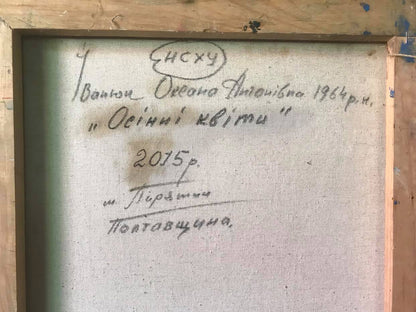 НСХУ
Іванюк Оксана Антонівна 1964 р.н.
„Осінні квіти"
2015 р.
м Пирятин
Полтавщина.